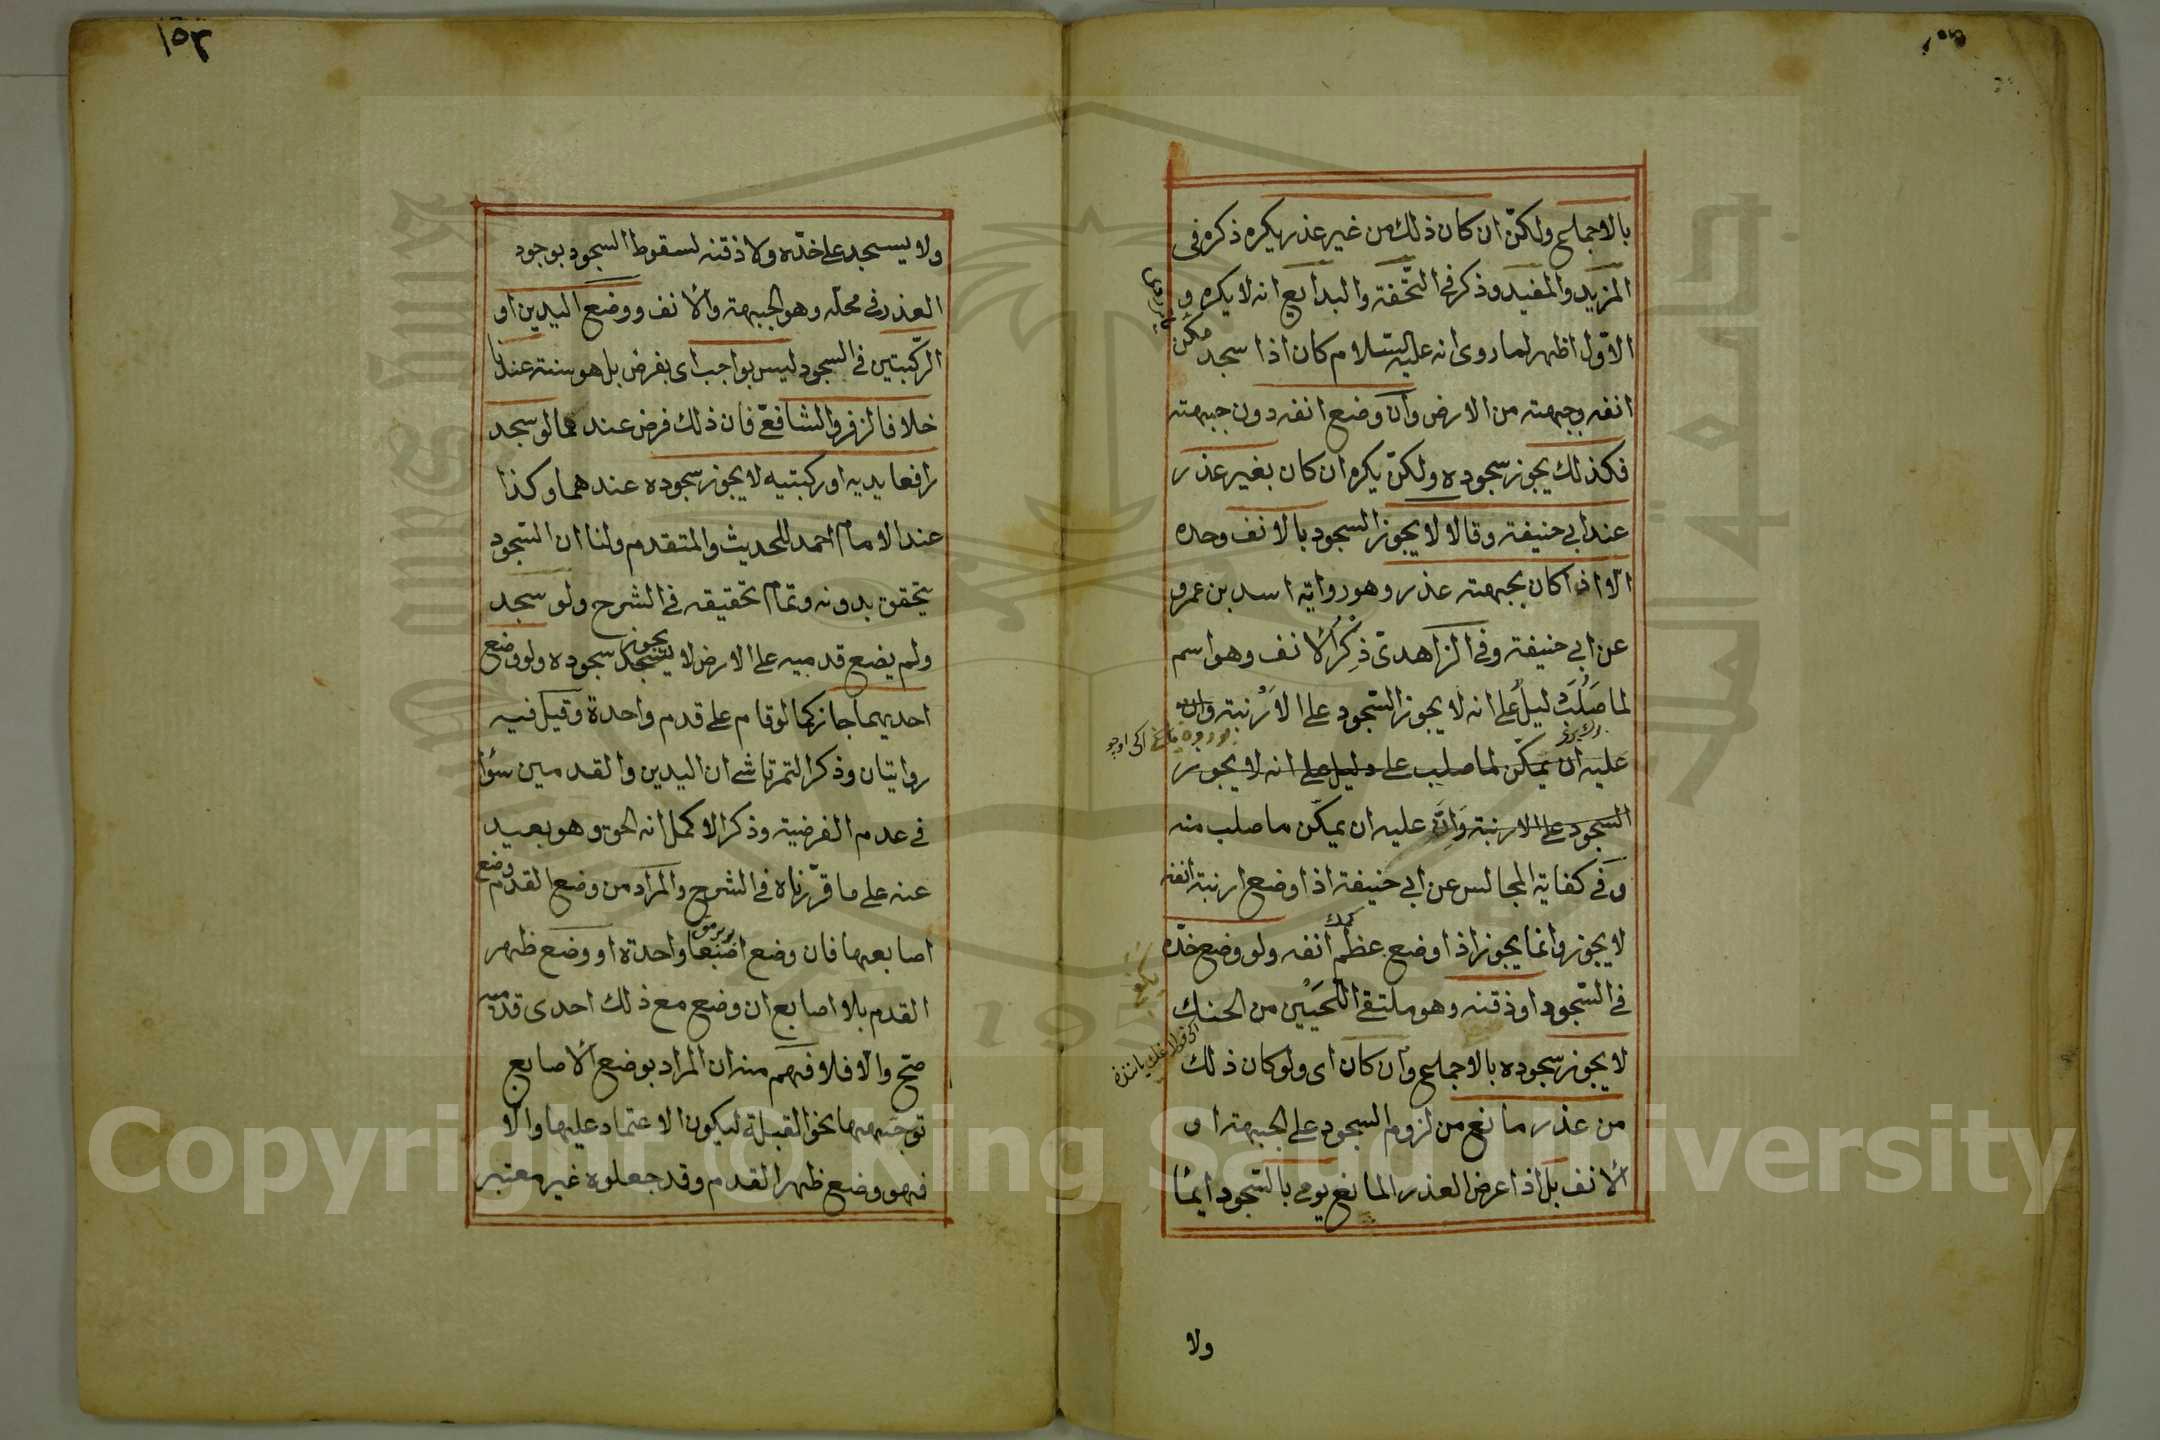 بالاجماع ولكن ان كان ذلك من غير عذر يكره ذكره فى
المزيد والمفيد وذكر فى التحفة والبدايع انه لا يكره و
الاول اظهر لما روى انه عليه السلام كان اذا سجد مكن
انفه وجبهته من الارض وان وضع انفه دون جبهته
فكذلك يجوز سجوده ولكن يكره ان كان بغير عذر
عند ابى حنيفة وقالا لا يجوز السجود بالانف وحده
الا اذا كان بجبهته عذر وهو رواية اسد بن عمرو
عن ابى حنيفة وفى الزاهدى ذكر الانف وهو اسم
لما صلب دليل على انه لا يجوز السجود على الارنبة وان
عليه ان يمكن لما صلب على دليل على انه لا يجوز
السجود على الارنبة وان عليه ان يمكن ما صلب منه
وفى كفاية المجالس عن ابى حنيفة اذا وضع ارنبة انفه
لا يجوز وانما يجوز اذا وضع عظم انفه ولو وضع خده
فى السجود او ذقنه وهو ملتقى اللحيين من الحنك
لا يجوز سجوده بالاجماع وان كان اى ولو كان ذلك
من عذر مانع من لزوم السجود على الجبهة او
الانف بل اذا عرض العذر المانع يومى بالسجود ايماً
ولا
١٥٣
ولا يسجد على خده ولا ذقنه لسقوط السجود بوجود
العذر فى محله وهو الجبهة والانف ووضع اليدين او
الركبتين فى السجود ليس بواجب اى بفرض بل هو سنة عندنا
خلافا لزفر والشافعى فان ذلك فرض عندهما لو سجد
رافعا يديه او ركبتيه لا يجوز سجوده عندهما وكذا
عند الامام احمد للحديث والمتقدم ولنا ان السجود
يتحقق بدونه وتمام تحقيقه فى الشرح ولو سجد
ولم يضع قدميه على الارض لا يجوز سجوده ولو وضع
احديهما جاز كما لو قام على قدم واحدة وقيل فيه
روايتان وذكر التمرتاشى ان اليدين والقدمين سواً
فى عدم الفرضية وذكر الاكمل انه الحق وهو بعيد
عنه على ما قررناه فى الشرح والمراد من وضع القدم وضع
اصابعها فان وضع اصبعا واحدة او وضع ظهر
القدم بلا اصابع ان وضع مع ذلك احدى قدميه
صح والا فلا فهم منه ان المراد بوضع الاصابع
توجيهها نحو القبلة ليكون الاعتماد عليها والا
فهو وضع ظهر القدم وقد جعلوه غير معتبر
Copyright © King Saud University